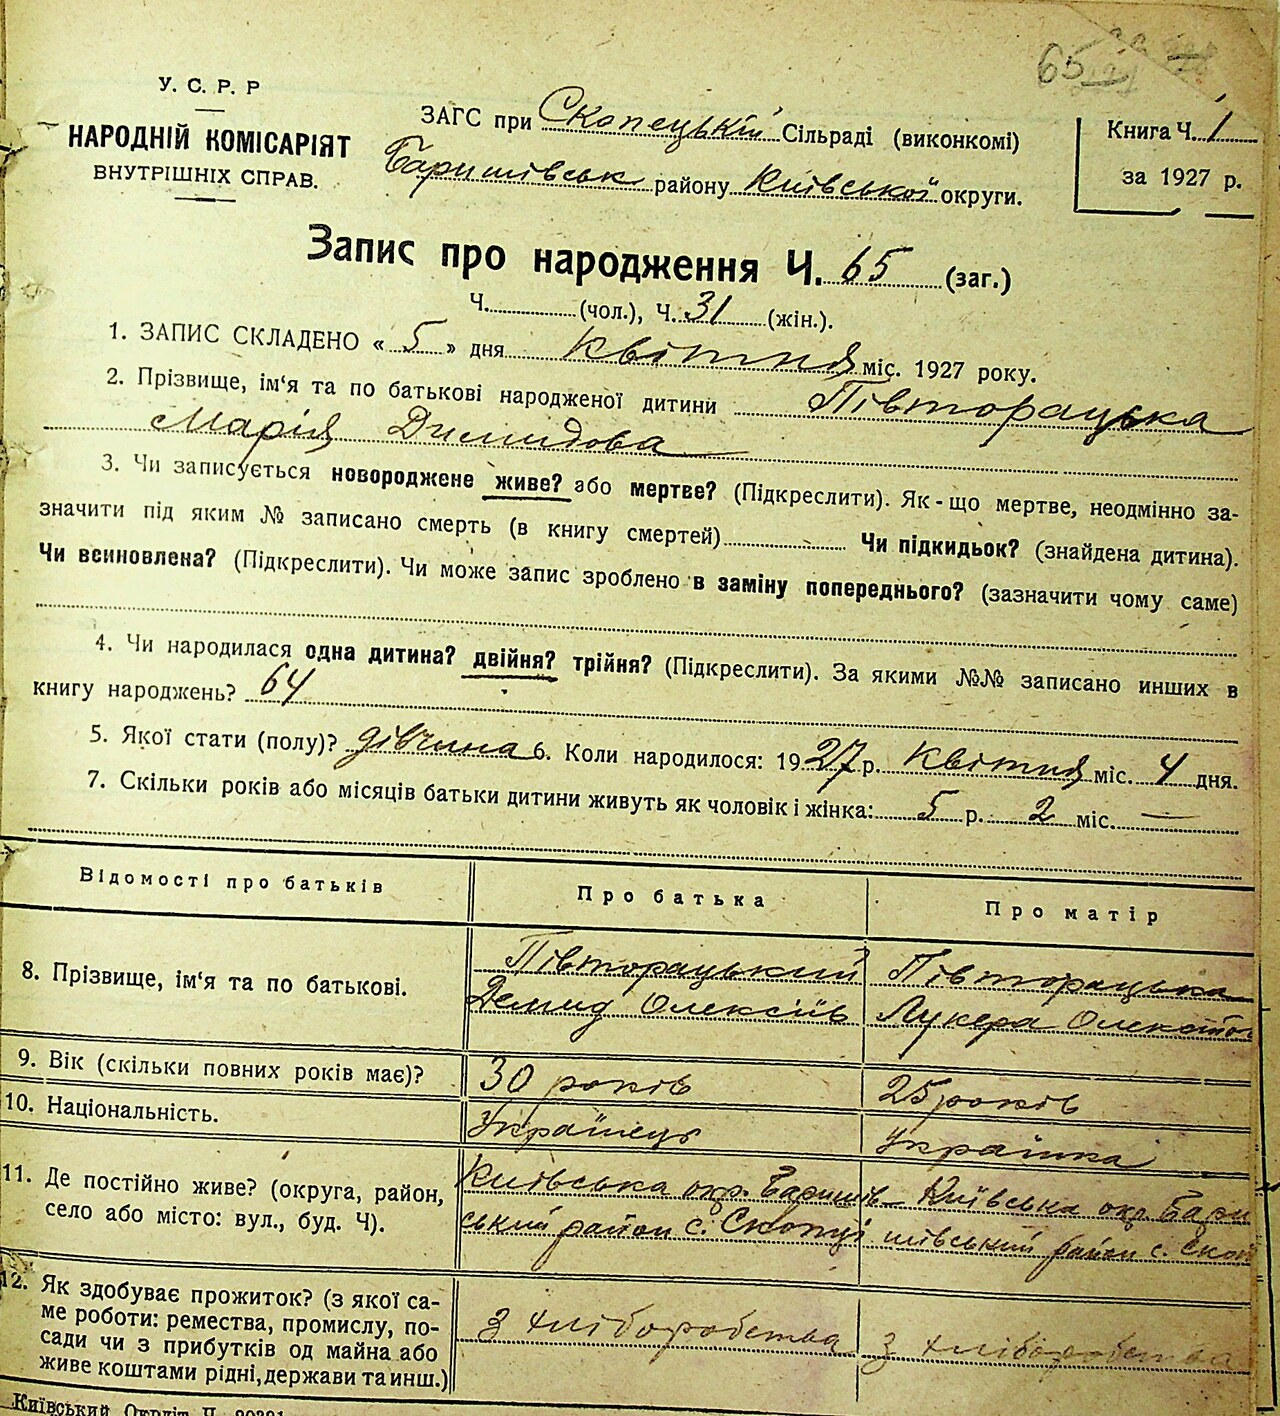 65
У. С. Р. Р
НАРОДНІЙ КОМІСАРІЯТ
ВНУТРІШНІХ СПРАВ.
ЗАГС при Скопецькій Сільраді (виконкомі)
Баришівськ району Київської округи.
Книга Ч. 1
за 1927 р.
Запис про народження Ч. 65 (заг.)
Ч. (чол.), Ч. 31 (жін.).
1. ЗАПИС СКЛАДЕНО « 5 » дня квітня міс. 1927 року.
2. Прізвище, ім‘я та по батькові народженої дитини Півторацька
Марія Димидова
3. Чи записується новороджене живе? або мертве? (Підкреслити). Як-що мертве, неодмінно за-
значити під яким № записано смерть (в книгу смертей) Чи підкидьок? (знайдена дитина).
Чи всиновлена? (Підкреслити). Чи може запис зроблено в заміну попереднього? (зазначити чому саме)
4. Чи народилася одна дитина? двійня? трійня? (Підкреслити). За якими №№ записано инших в
книгу народжень? 64
5. Якої стати (полу)? дівчина 6. Коли народилося: 1927 р. квітня міс. 4 дня.
7. Скільки років або місяців батьки дитини живуть як чоловік і жінка: 5 р. 2 міс. —
Відомості про батьків
Про батька
Про матір
8. Прізвище, ім‘я та по батькові.
Півторацький
Демид Олексіїв
Півторацька
Лукера
9. Вік (скільки повних років має)?
30 років
25 років
10. Національність.
Українець
Українка
11. Де постійно живе? (округа, район,
село або місто: вул., буд. Ч).
Київська окр. Баришів–
ський район с. Скопці
Київська окр. Бари
шівський район с. Скоп
12. Як здобуває прожиток? (з якої са-
ме роботи: ремества, промислу, по-
сади чи з прибутків од майна або
живе коштами рідні, держави та инш.)
З хліборобства
З хліборобства
Київський Окрліт